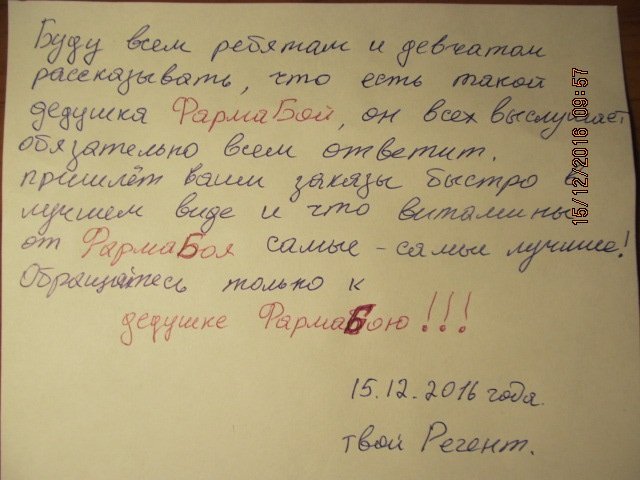 Буду всем ребятам и девчатам
рассказывать, что есть такой
дедушка ФармаБой, он всех выслушает
обязательно всем ответит.
пришлёт ваши заказы быстро в
лучшем виде и что витамины
от ФармаБоя самые-самые лучшие!
Обращайтесь только к
дедушке ФармаБою!!!
15.12.2016 года.
твой Регент.
15/12/2016 09:57